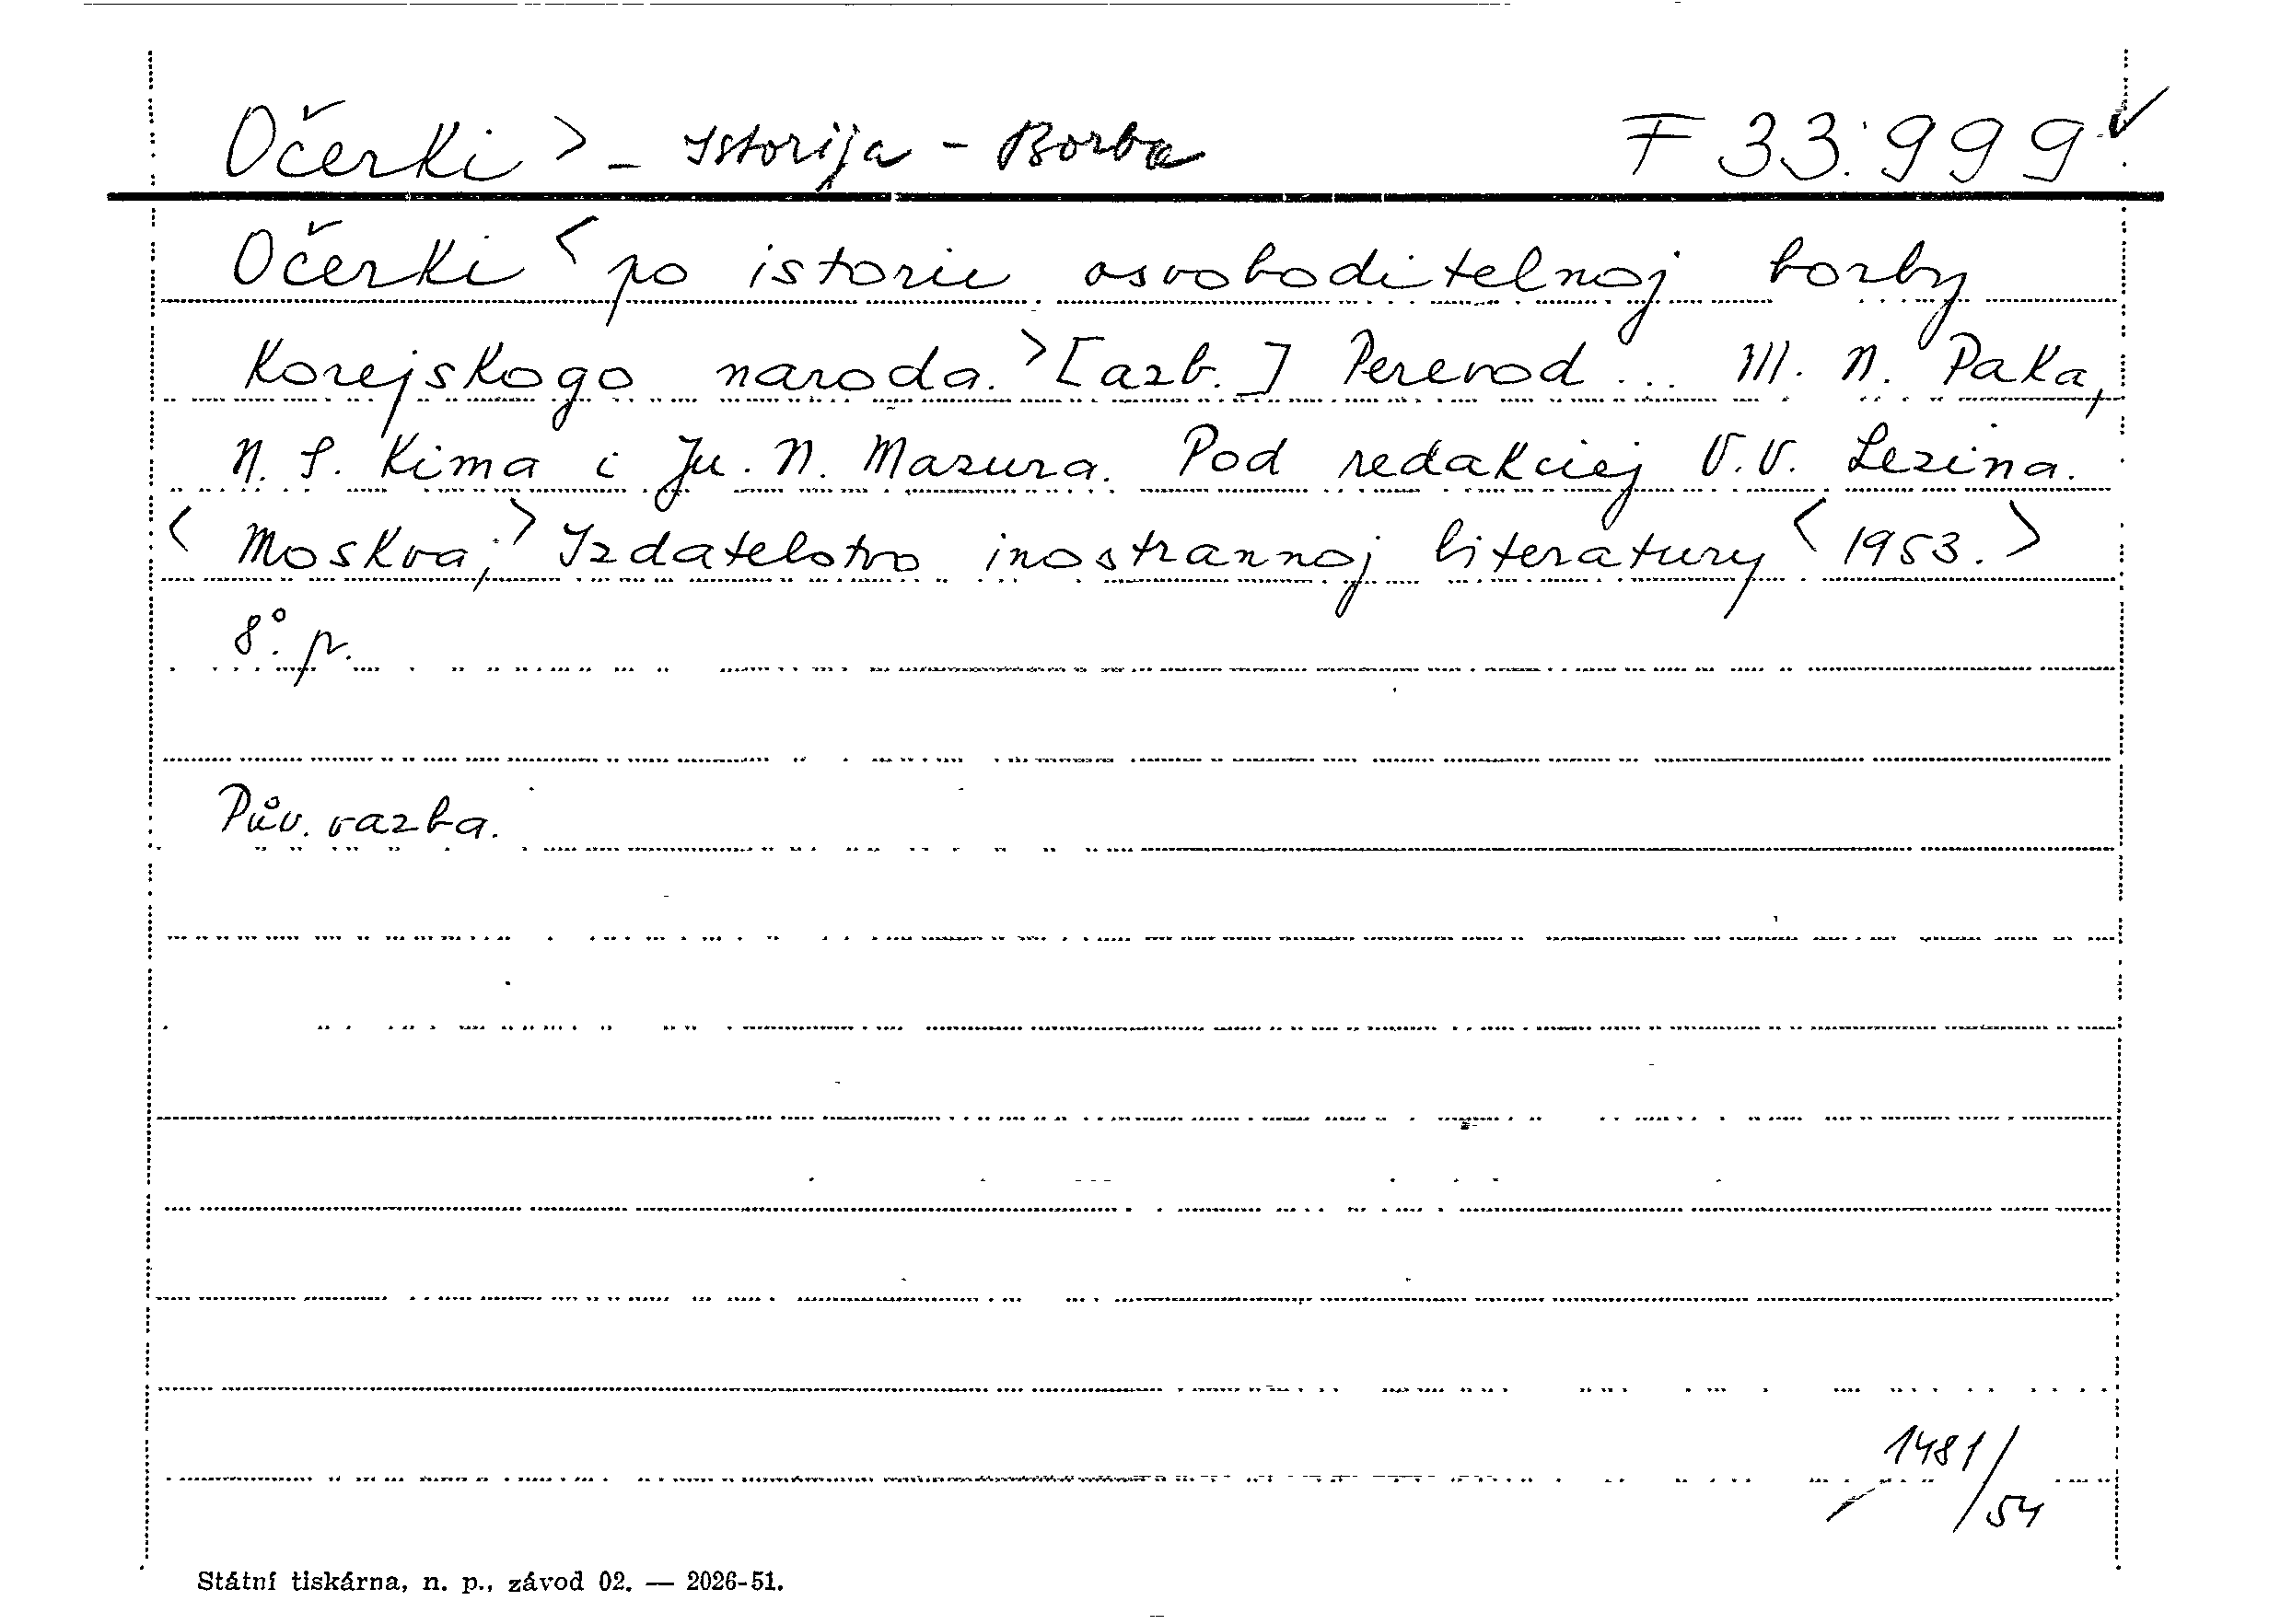 Očerki > - Istorija - Borba F 33.999
Očerki < po istorie osvoboditelnoj borby
Korejskogo naroda. > [azb.] Perevod ... M. N. Paka,
N. S. Kima i Ju. N. Mazura. Pod redakciej V. V. Lezina.
< Moskva, > Izdatelstvo inostrannoj literatury < 1953. >
8°. p.
Pův. vazba.
1481/54
Státní tiskárna, n. p., závod 02. — 2026-51.